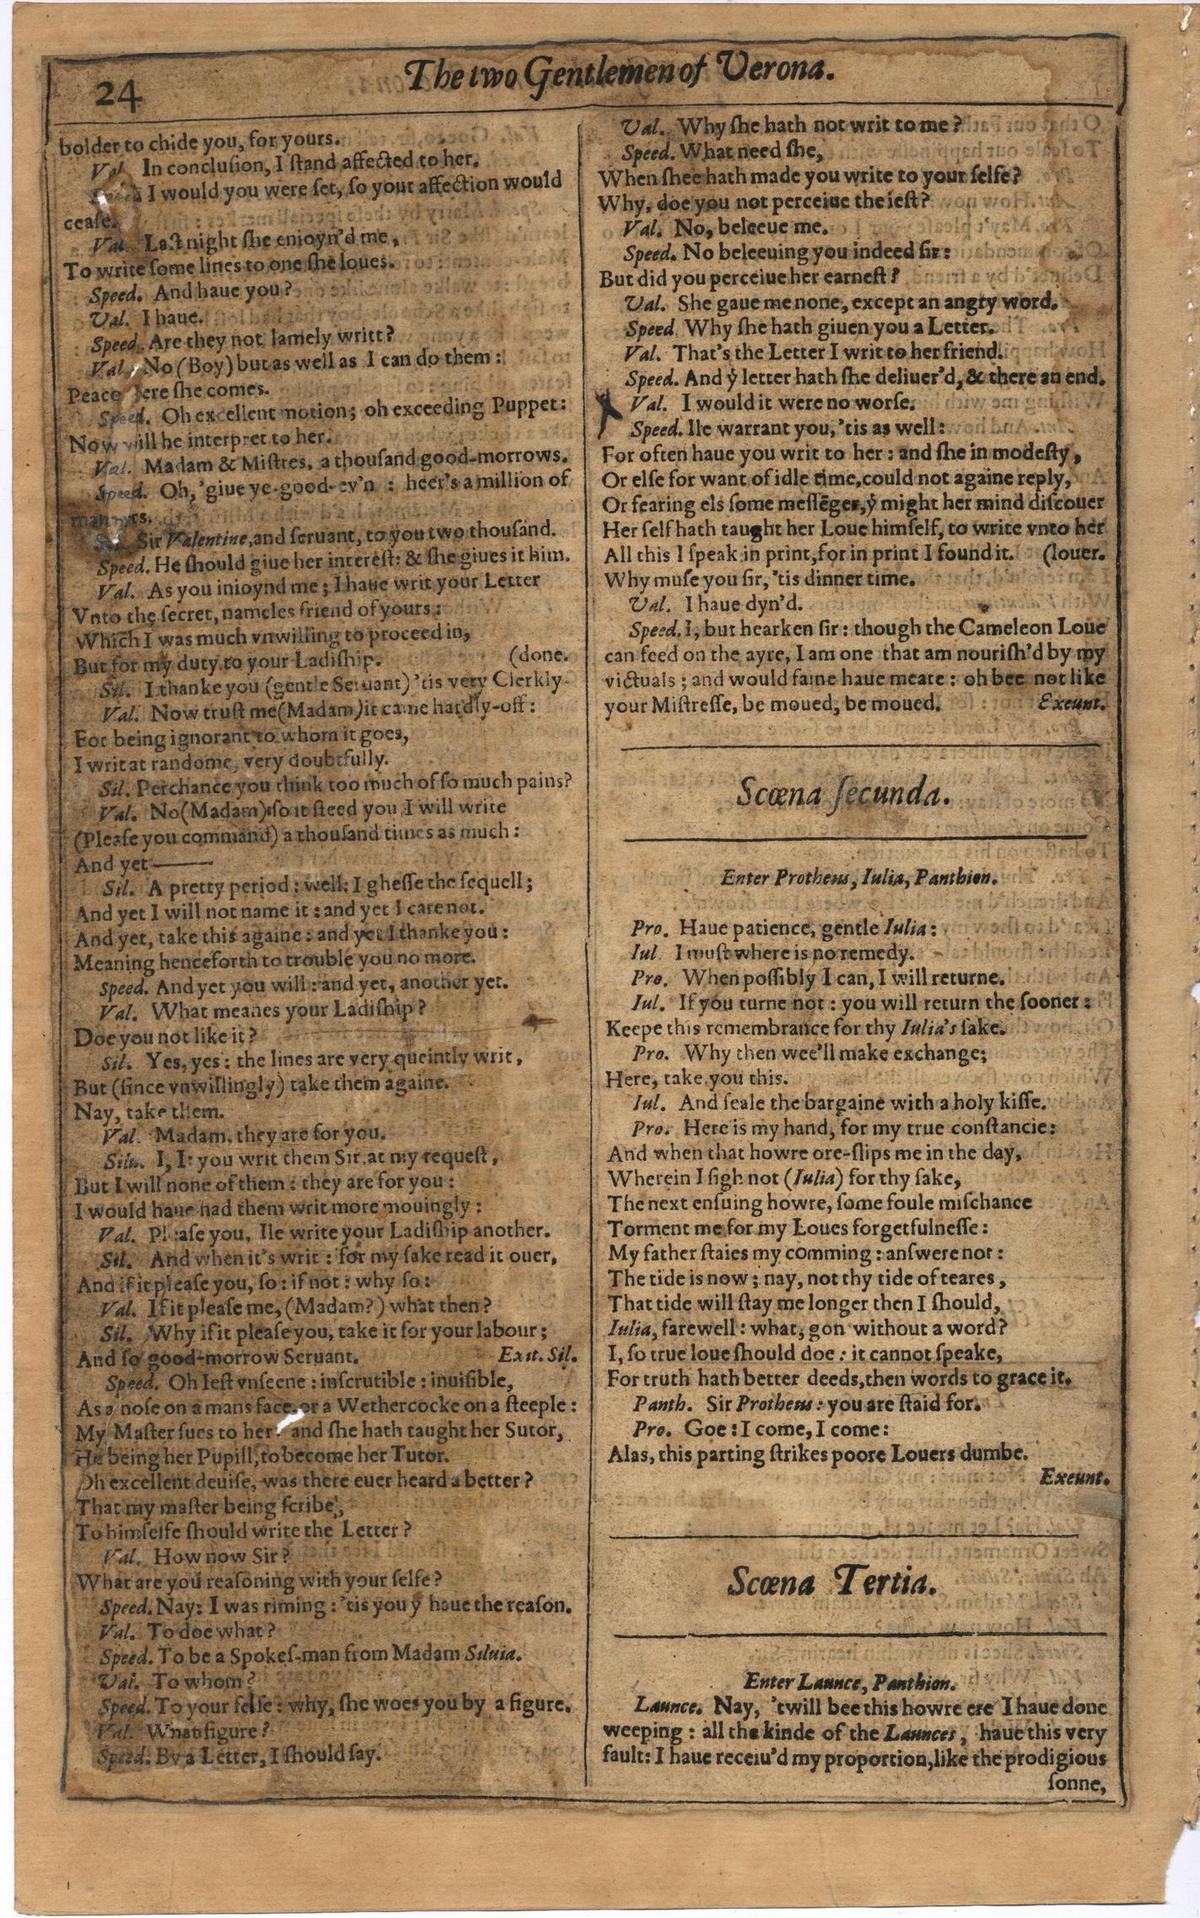 24
The two Gentlemen of Verona.
bolder to chide you, for yours.
Val. In conclusion, I stand affected to her.
I would you were set, so your affection would
cease.
Val. Last night she enioyn'd me,
To write some lines to one she loues.
Speed. And haue you?
Val. I haue.
Speed. Are they not lamely writt?
Val. No (Boy) but as well as I can do them:
Peace here she comes.
Speed. Oh excellent motion; oh exceeding Puppet:
Now will he interpret to her.
Val. Madam & Mistres, a thousand good-morrows.
Speed. Oh, 'giue ye-good-ev'n : heer's a million of
manners.
Sil. Sir Valentine, and seruant, to you two thousand.
Speed. He should giue her interest: & she giues it him.
Val. As you inioynd me; I haue writ your Letter
Vnto the secret, nameles friend of yours:
Which I was much vnwilling to proceed in,
But for my duty to your Ladiship. (done.
Sil. I thanke you (gentle Seruant) 'tis very Clerkly-
Val. Now trust me (Madam) it came hardly-off:
For being ignorant to whom it goes,
I writ at randome, very doubtfully.
Sil. Perchance you think too much of so much pains?
Val. No (Madam) so it steed you, I will write
(Please you command) a thousand times as much:
And yet ———
Sil. A pretty period: well: I ghesse the sequell;
And yet I will not name it: and yet I care not.
And yet, take this againe: and yet I thanke you:
Meaning henceforth to trouble you no more.
Speed. And yet you will: and yet, another yet.
Val. What meanes your Ladiship?
Doe you not like it?
Sil. Yes, yes: the lines are very queintly writ,
But (since vnwillingly) take them againe.
Nay, take them.
Val. Madam, they are for you.
Silu. I, I: you writ them Sir, at my request,
But I will none of them: they are for you:
I would haue had them writ more mouingly:
Val. Please you, Ile write your Ladiship another.
Sil. And when it's writ: for my sake read it ouer,
And if it please you, so: if not: why so:
Val. If it please me, (Madam?) what then?
Sil. Why if it please you, take it for your labour;
And so good-morrow Seruant. Exit. Sil.
Speed. Oh Iest vnseene: inscrutible: inuisible,
As a nose on a mans face, or a Wethercocke on a steeple:
My Master sues to her: and she hath taught her Sutor,
He being her Pupill, to become her Tutor.
Oh excellent deuise, was there euer heard a better?
That my master being scribe,
To himselfe should write the Letter?
Val. How now Sir?
What are you reasoning with your selfe?
Speed. Nay: I was riming: 'tis you yͭ haue the reason.
Val. To doe what?
Speed. To be a Spokes-man from Madam Siluia.
Val. To whom?
Speed. To your selfe: why, she woes you by a figure.
Val. What figure?
Speed. By a Letter, I should say.
Val. Why she hath not writ to me?
Speed. What need she,
When shee hath made you write to your selfe?
Why, doe you not perceiue the iest?
Val. No, beleeue me.
Speed. No beleeuing you indeed sir:
But did you perceiue her earnest?
Val. She gaue me none, except an angry word.
Speed. Why she hath giuen you a Letter.
Val. That's the Letter I writ to her friend.
Speed. And yͭ letter hath she deliuer'd, & there an end.
Val. I would it were no worse.
Speed. Ile warrant you, 'tis as well:
For often haue you writ to her: and she in modesty,
Or else for want of idle time, could not againe reply,
Or fearing els some messēger, yͭ might her mind discouer
Her self hath taught her Loue himself, to write vnto her
All this I speak in print, for in print I found it. (louer.
Why muse you sir, 'tis dinner time.
Val. I haue dyn'd.
Speed. I, but hearken sir: though the Cameleon Loue
can feed on the ayre, I am one that am nourish'd by my
victuals; and would faine haue meate: oh bee not like
your Mistresse, be moued, be moued. Exeunt.
Scœna secunda.
Enter Protheus, Iulia, Panthion.
Pro. Haue patience, gentle Iulia:
Iul. I must where is no remedy.
Pro. When possibly I can, I will returne.
Iul. If you turne not: you will return the sooner:
Keepe this remembrance for thy Iulia's sake.
Pro. Why then wee'll make exchange;
Here, take you this.
Iul. And seale the bargaine with a holy kisse.
Pro. Here is my hand, for my true constancie:
And when that howre ore-slips me in the day,
Wherein I sigh not (Iulia) for thy sake,
The next ensuing howre, some foule mischance
Torment me for my Loues forgetfulnesse:
My father staies my comming: answere not:
The tide is now; nay, not thy tide of teares,
That tide will stay me longer then I should,
Iulia, farewell: what, gon without a word?
I, so true loue should doe: it cannot speake,
For truth hath better deeds, then words to grace it.
Panth. Sir Protheus: you are staid for.
Pro. Goe: I come, I come:
Alas, this parting strikes poore Louers dumbe.
Exeunt.
Scœna Tertia.
Enter Launce, Panthion.
Launce. Nay, 'twill bee this howre ere I haue done
weeping: all the kinde of the Launces, haue this very
fault: I haue receiu'd my proportion, like the prodigious
sonne,